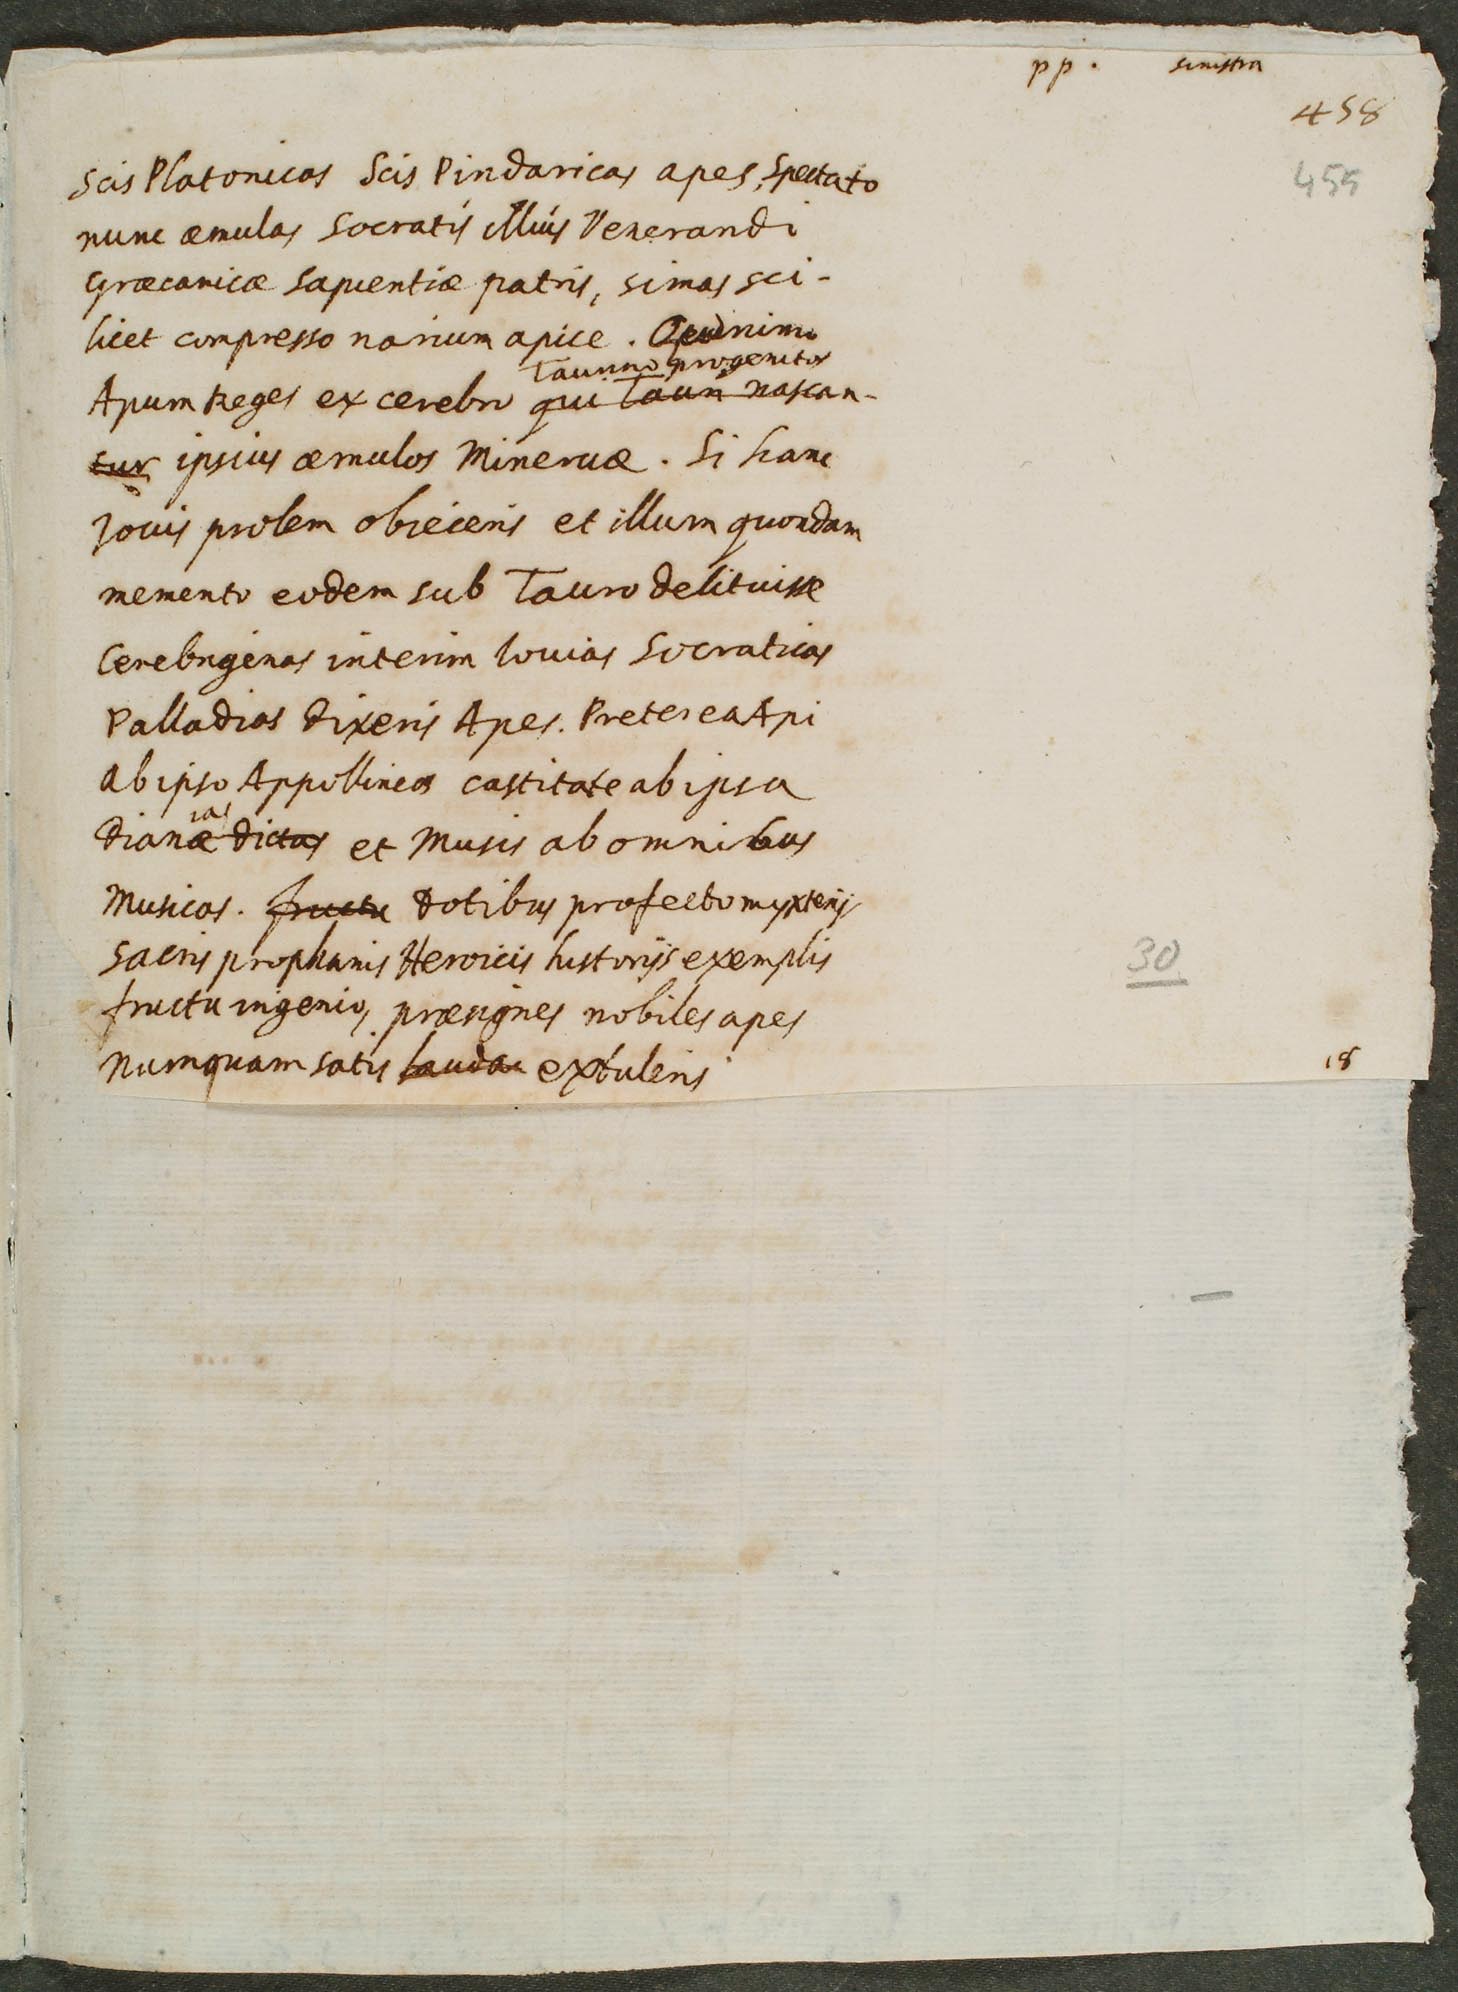 pp. sinistra
458
455
Scis Platonicas Scis Pindaricas apes, Spectato
nunc æmulas Socratis illius Venerandi
Græcanicæ Sapientiæ patris, simas sci-
licet compresso narium apice. Quinimo
Taurino progenitos
Apum Reges ex cerebro qui Tauri nascan-
tur ipsius æmulos Mineruæ. Si hanc
Jouis prolem obieceris et illum quondam
memento eodem sub Tauro delituisse
Cerebrigenas interim Iouias Socraticas
Palladias dixeris Apes. Preterea Api
ab ipso Appollineas castitate ab ipsa
ias
Dianæ dictas et Musis ab omnibus
Musicas. fructu dotibus profecto mysterijs
sacris prophanis Heroicis historijs exemplis
fructu ingenio, præsignes nobiles apes
numquam satis laudar extuleris
30
18